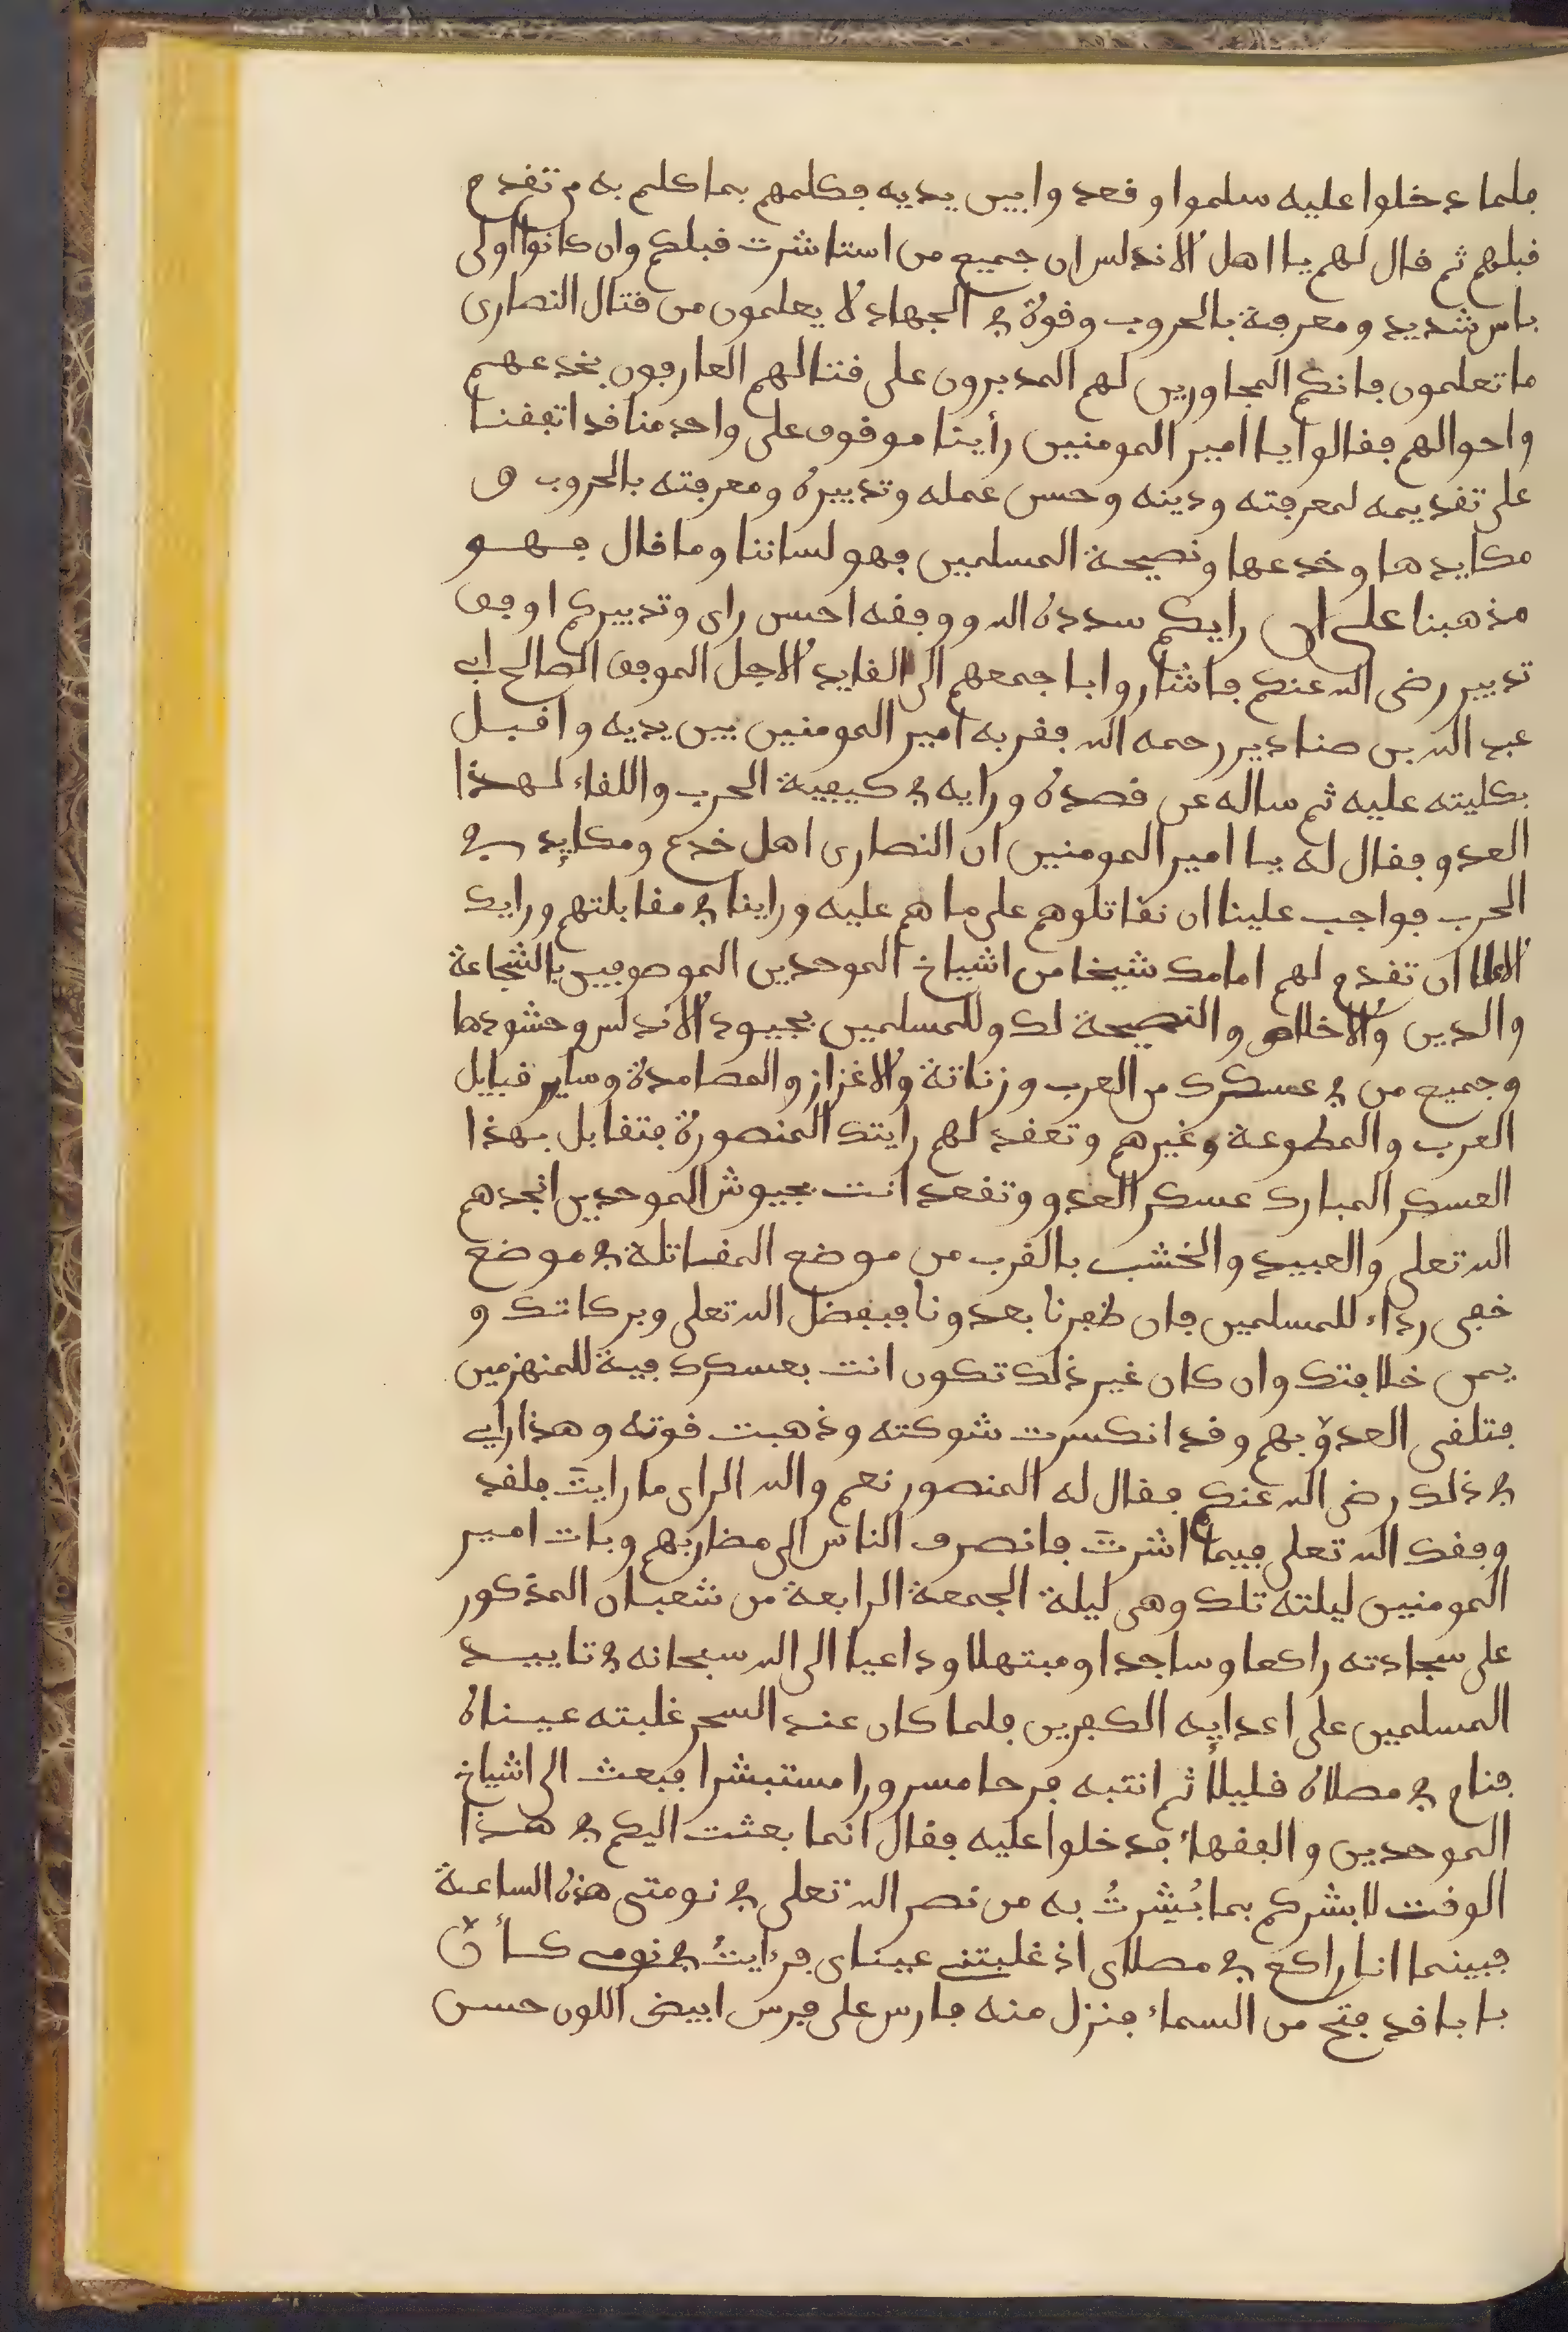 فلما دخلوا عليه سلموا وقعدوا بين يديه فكلمهم بما كلم به من تقدم
قبلهم ثم قال لهم يا اهل الاندلس ان جميع من استاشرت قبلكم وان كانوا اولى
باس شديد ومعرفة بالحروب وقوة في الجهاد لا يعلمون من قتال النصارى
ما تعلمون فانكم المجاورين لهم المدبرون على قتالهم العارفون بخدعهم
واحوالهم فقالوا يا امير المومنين رأينا موقوف على واحد منا قد اتفقنا
على تقديمه لمعرفته ودينه وحسن عمله وتدبيره ومعرفته بالحروب و
مكايدها وخدعها ونصيحة المسلمين فهو لساننا وما قال فهو
مذهبنا على ان رايكم سدده الله ووفقه احسن راى وتدبيركم اوفق
تدبير رضى الله عنكم فاشاروا باجمعهم الى القايد الاجل الموفق الصالح ابي
عبد الله بن صناديد رحمه الله فقربه امير المومنين بين يديه واقبل
بكليته عليه ثم ساله عن قصده ورايه في كيفية الحرب واللقاء لهذا
العدو فقال له يا امير المومنين ان النصارى اهل خدع ومكايد في
الحرب فواجب علينا ان نقاتلوهم على ما هم عليه وراينا في مقابلتهم ورايك
الاعلا ان تقدم لهم امامك شيخا من اشياخ الموحدين الموصوفين بالشجاعة
والدين والاخلاص والنصيحة لك وللمسلمين بجيوش الاندلس وحشودها
وجميع من في عسكرك من العرب وزناتة والاغزاز والمصامدة وساير قبايل
العرب والمطوعة وغيرهم وتعقد لهم رايتك المنصورة فتقابل بهذا
العسكر المبارك عسكر العدو وتقعد انت بجيوش الموحدين انجدهم
الله تعلى والعبيد والخشب بالقرب من موضع المقاتلة في موضع
خفي رداء للمسلمين فان ظفرنا بعدونا فبفضل الله تعلى وبركاتك و
يمن خلافتك وان كان غير ذلك تكون انت بعسكرك فية للمنهزمين
فتلقى العدوّ بهم وقد انكسرت شوكته وذهبت قوته وهذا رايي
في ذلك رضى الله عنكم فقال له المنصور نعم والله الراى ما رايتَ فلقد
وفقك الله تعلى فيما اشرتَ فانصرف الناس الى مضاربهم وبات امير
المومنين ليلته تلك وهي ليلة الجمعة الرابعة من شعبان المذكور
على سجادته راكعا وساجدا ومبتهلا وداعيا الى الله سبحانه في تاييد
المسلمين على اعدايه الكفرين فلما كان عند السحر غلبته عيناه
فنام في مصلاه قليلاً ثم انتبه فرحا مسرورا مستبشرا فبعث الى اشياخ
الموحدين والفقهاء فدخلوا عليه فقال انما بعثت اليكم في هذا
الوقت لابشركم بما بُشِّرتُ به من نصر الله تعلى في نومتي هذه الساعة
فبينما انا راكع في مصلاى اذ غلبتني عيناى فرايتُ في نومي كأنّ
بابا قد فتح من السماء فنزل منه فارس على فرس ابيض اللون حسن